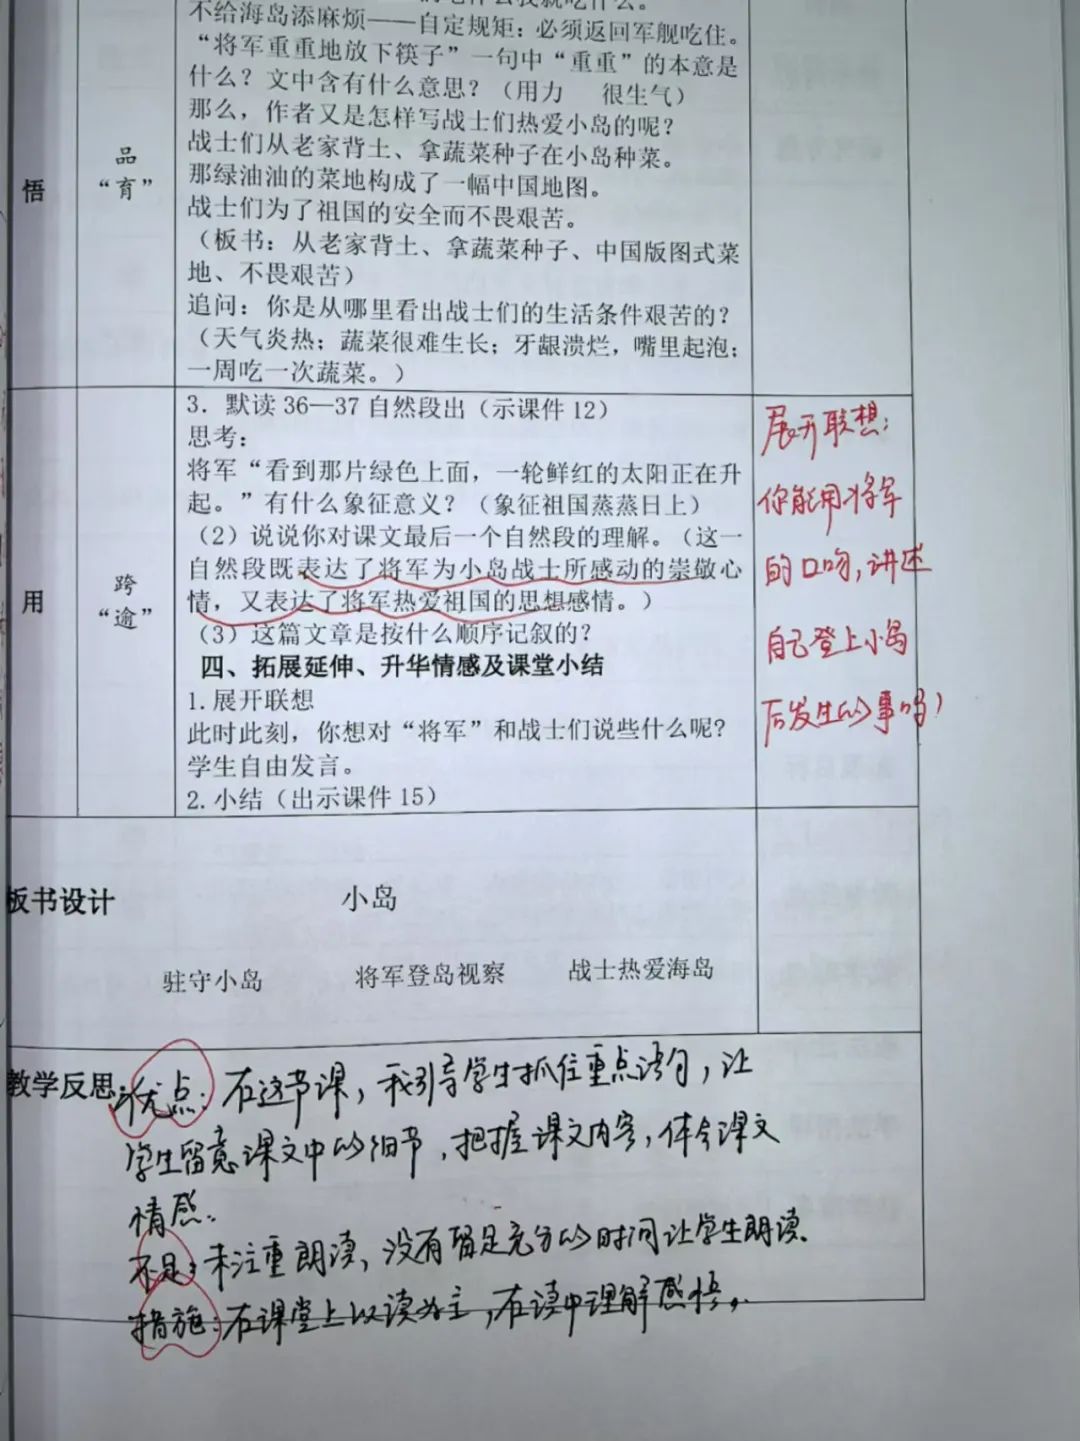 不给海岛添麻烦——自定规矩：必须返回军舰吃住。
“将军重重地放下筷子”一句中“重重”的本意是
什么？文中含有什么意思？（用力 很生气）
那么，作者又是怎样写战士们热爱小岛的呢？
战士们从老家背土、拿蔬菜种子在小岛种菜。
那绿油油的菜地构成了一幅中国地图。
战士们为了祖国的安全而不畏艰苦。
（板书：从老家背土、拿蔬菜种子、中国版图式菜
地、不畏艰苦）
追问：你是从哪里看出战士们的生活条件艰苦的？
（天气炎热；蔬菜很难生长；牙龈溃烂，嘴里起泡；
一周吃一次蔬菜。）
悟
品
“育”
3．默读 36—37 自然段出（示课件 12）
思考：
将军“看到那片绿色上面，一轮鲜红的太阳正在升
起。”有什么象征意义？（象征祖国蒸蒸日上）
（2）说说你对课文最后一个自然段的理解。（这一
自然段既表达了将军为小岛战士所感动的崇敬心
情，又表达了将军热爱祖国的思想感情。）
（3）这篇文章是按什么顺序记叙的？
四、拓展延伸、升华情感及课堂小结
1.展开联想
此时此刻，你想对“将军”和战士们说些什么呢？
学生自由发言。
2.小结（出示课件 15）
用
跨
“逾”
展开联想：
你能用将军
的口吻，讲述
自己登上小岛
后发生的事吗？
板书设计
小岛
驻守小岛 将军登岛视察 战士热爱海岛
教学反思：优点：在这节课，我引导学生抓住重点语句，让
学生留意课文中的细节，把握课文内容，体会课文
情感。
不足：未注重朗读，没有留足充分的时间让学生朗读。
措施：在课堂上以读为主，在读中理解感悟。